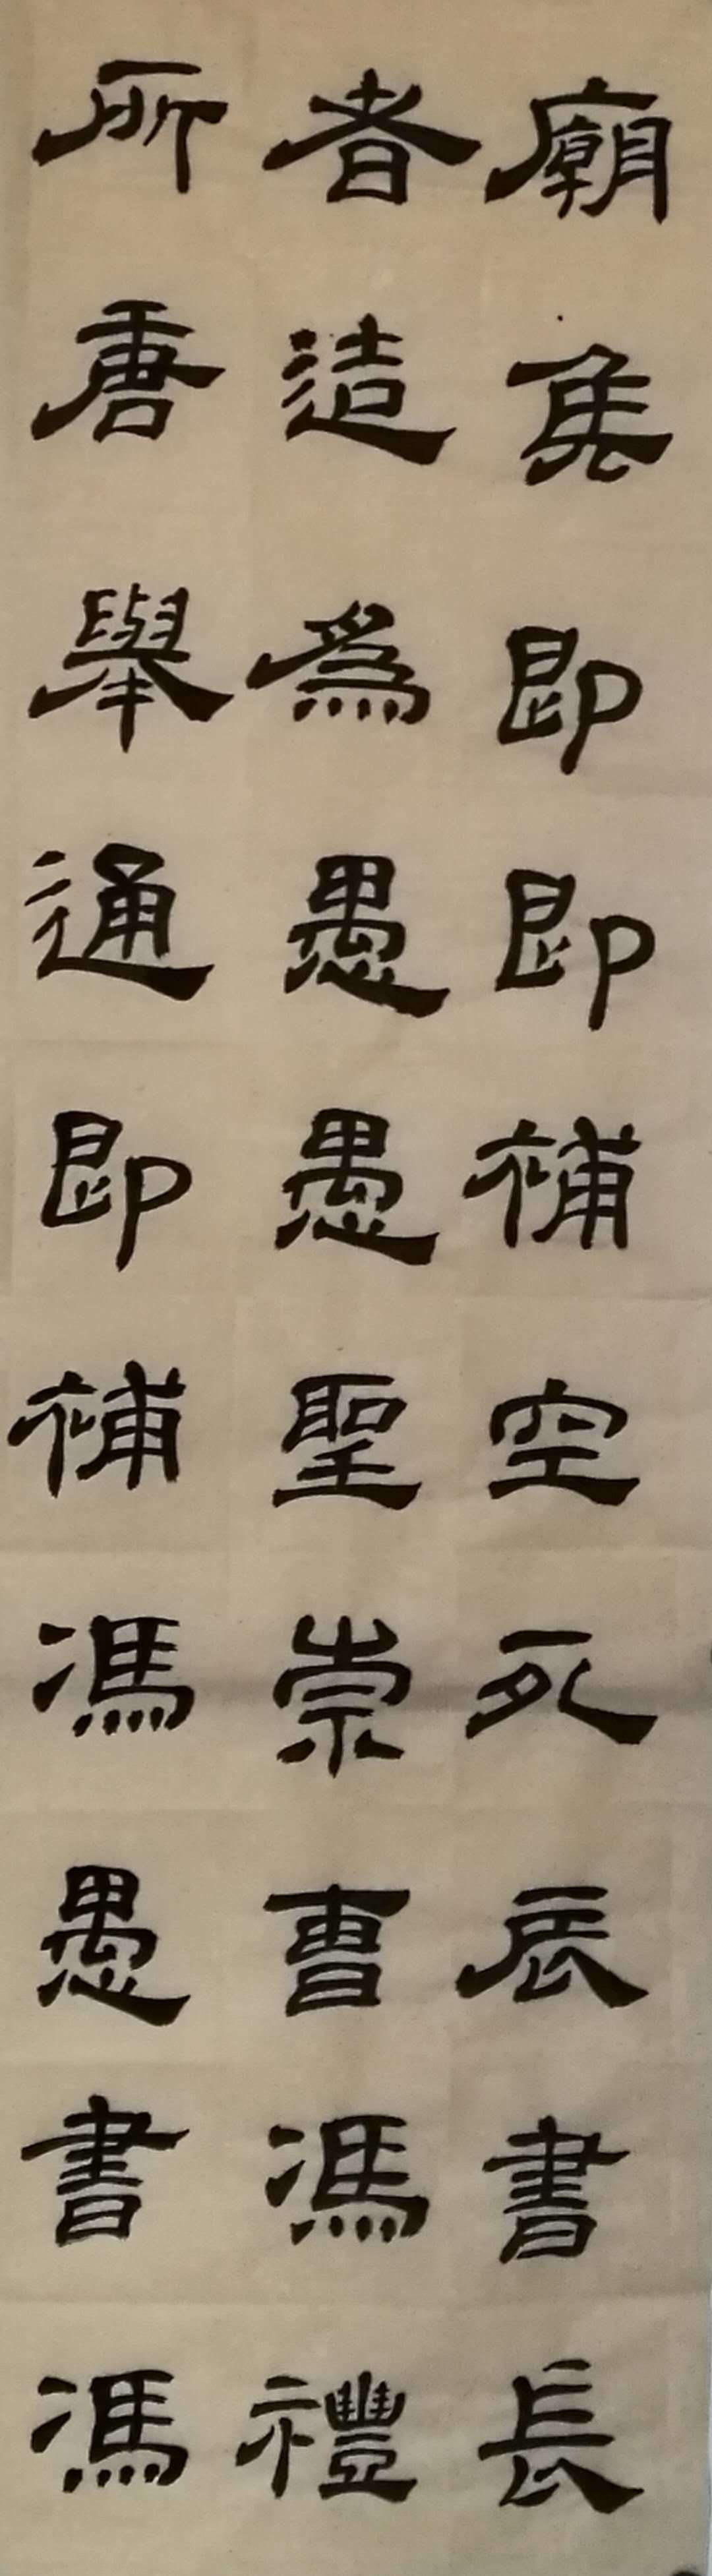 廟侯即即補空死辰書長
者造為愚愚聖崇曹馮禮
所唐舉通即補馮愚書馮